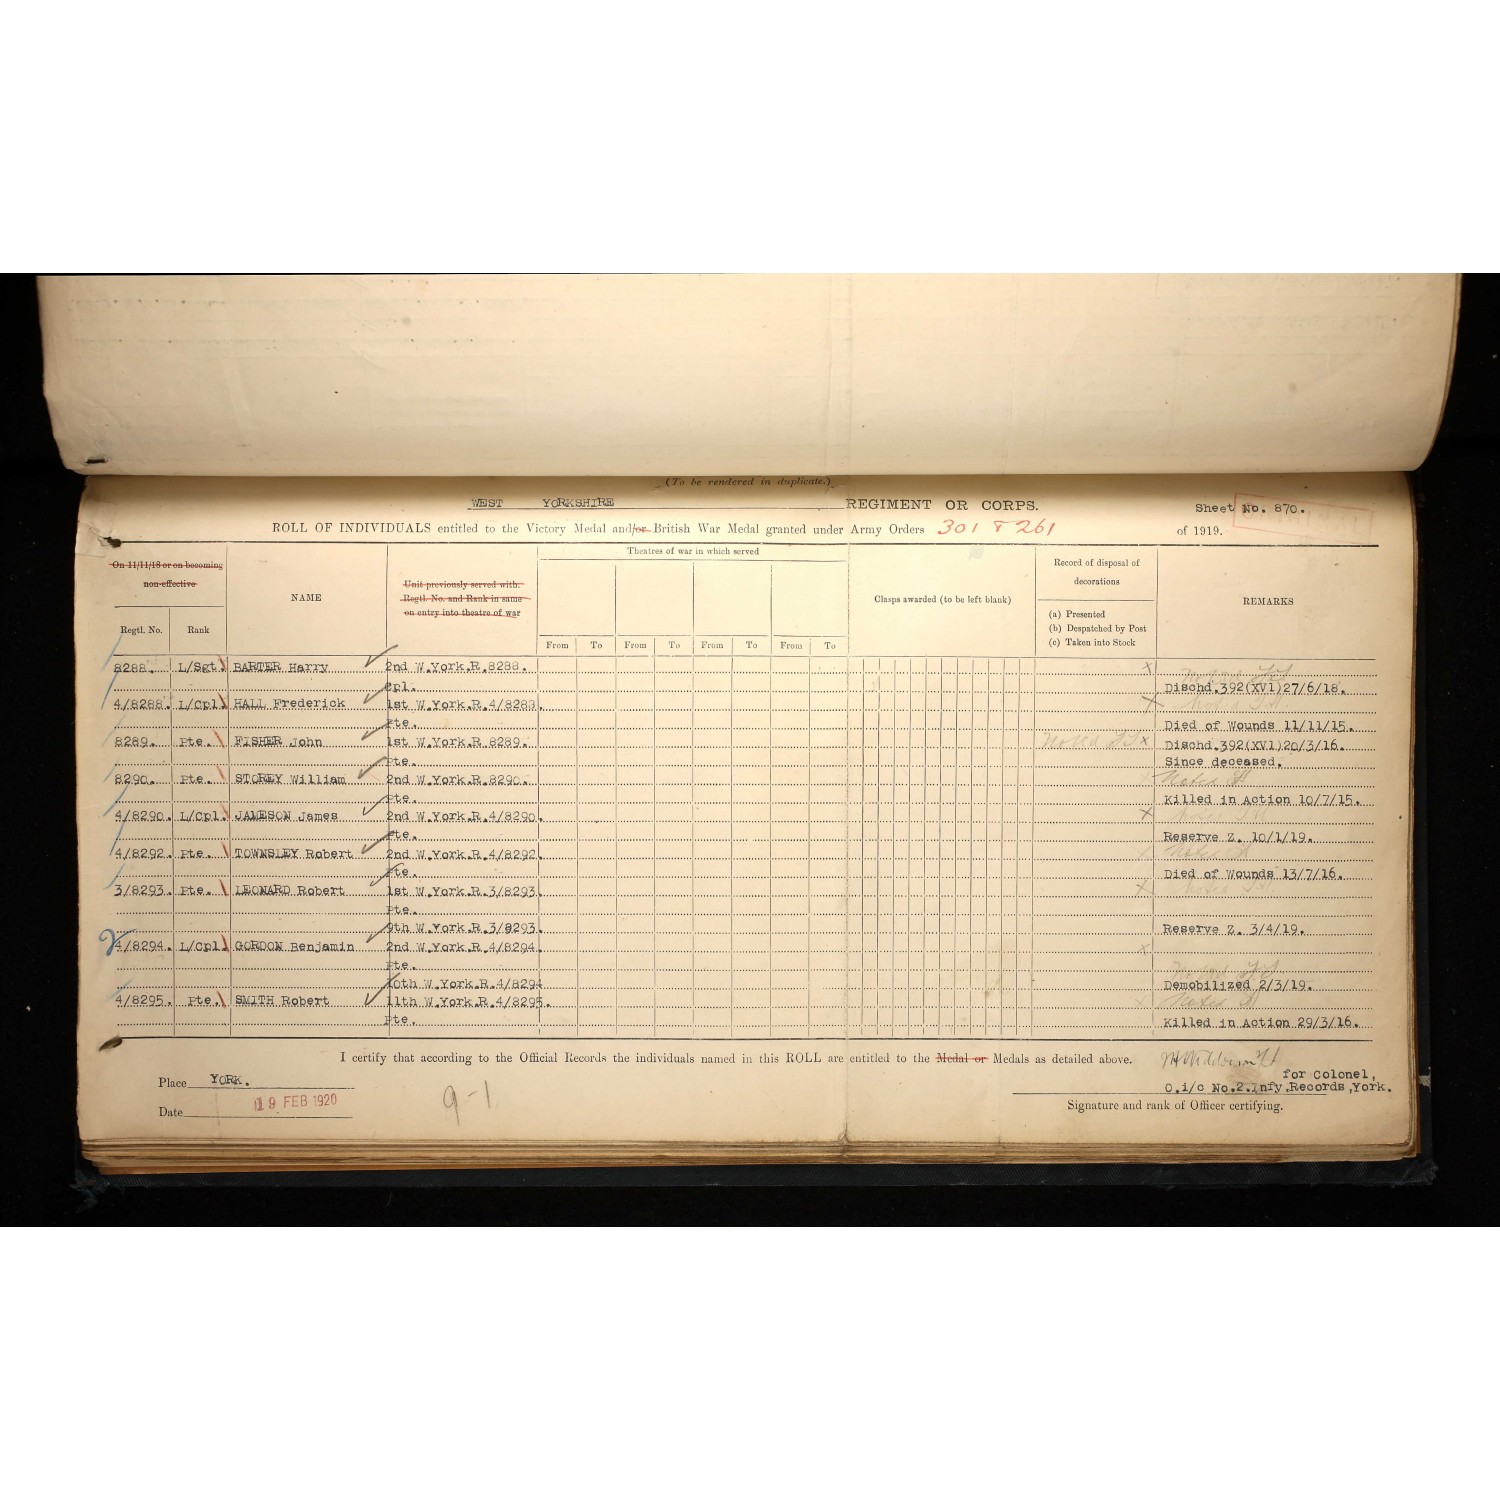 (To be rendered in duplicate.)
WEST YORKSHIRE REGIMENT OR CORPS. Sheet No. 870.
ROLL OF INDIVIDUALS entitled to the Victory Medal and/or British War Medal granted under Army Orders 301 & 261 of 1919.
On 11/11/18 or on becoming non-effective
Regtl. No. Rank
NAME
Unit previously served with.
Regtl. No. and Rank in same
on entry into theatre of war
Theatres of war in which served
From To From To From To From To
Clasps awarded (to be left blank)
Record of disposal of decorations
(a) Presented
(b) Despatched by Post
(c) Taken into Stock
REMARKS
8288. L/Sgt. BARTER Harry 2nd W.York.R.8288.
Cpl. Dischd.392(XVI)27/6/18.
4/8288. L/Cpl. HALL Frederick 1st W.York.R.4/8288.
Pte. Died of Wounds 11/11/15.
8289. Pte. FISHER John 1st W.York.R.8289. Noted Dischd.392(XVI)20/3/16.
Pte. Since deceased.
8290. Pte. STOREY William 2nd W.York.R.8290. Noted
Pte. Killed in Action 10/7/15.
4/8290. L/Cpl. JAMESON James 2nd W.York.R.4/8290.
Pte. Reserve Z. 10/1/19.
4/8292. Pte. TOWNSLEY Robert 2nd W.York.R.4/8292. Noted
Pte. Died of Wounds 13/7/16.
3/8293. Pte. LEONARD Robert 1st W.York.R.3/8293. Noted
Pte.
9th W.York.R.3/8293. Reserve Z. 3/4/19.
2 4/8294. L/Cpl. GORDON Benjamin 2nd W.York.R.4/8294.
Pte. Noted
10th W.York.R.4/8294 Demobilized 2/3/19.
4/8295. Pte. SMITH Robert 11th W.York.R.4/8295. Noted
Pte. Killed in Action 29/3/16.
I certify that according to the Official Records the individuals named in this ROLL are entitled to the Medal or Medals as detailed above.
for Colonel,
Place YORK. O.i/c No.2.Infy.Records,York.
Date 19 FEB 1920 9-1 Signature and rank of Officer certifying.